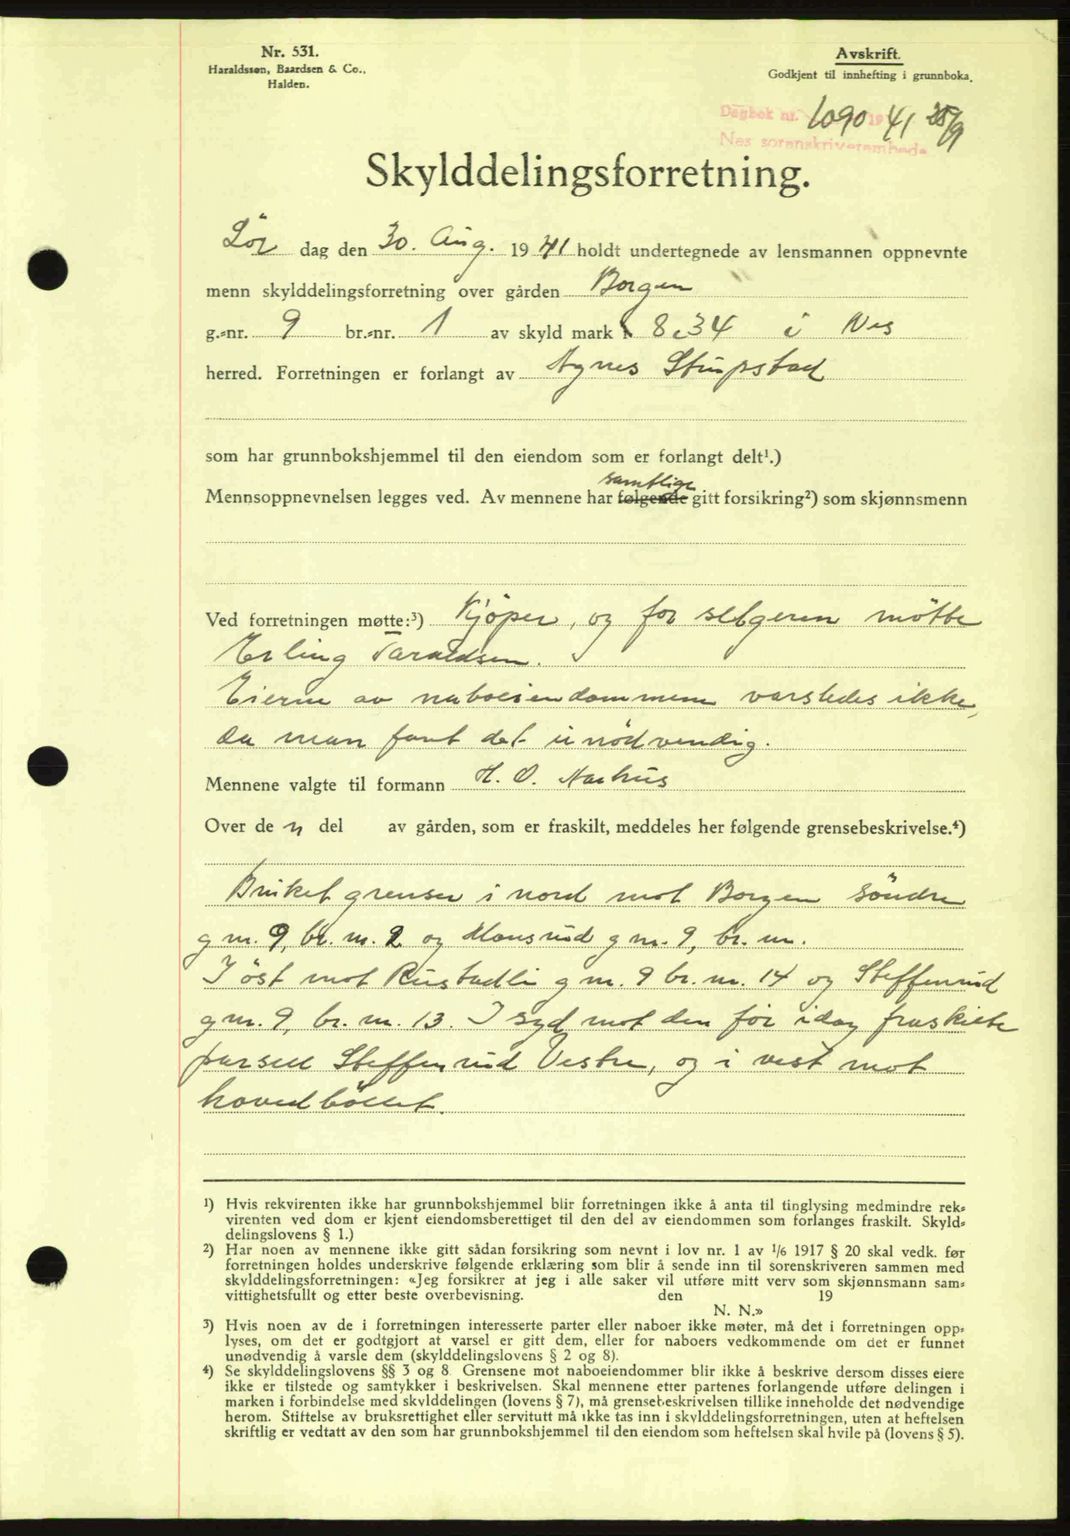 Nr. 531.
Haraldssøn, Baardsen & Co.,
Halden.
Avskrift.
Godkjent til innhefting i grunnboka.
Dagbok nr. 1090 19 41 25/9
Nes sorenskriverembede
Skylddelingsforretning.
Lör dag den 30. Aug. 19 41 holdt undertegnede av lensmannen oppnevnte
menn skylddelingsforretning over gården Borgen
g.-nr. 9 br.-nr. 1 av skyld mark 8,34 i Nes
herred. Forretningen er forlangt av Agnes
som har grunnbokshjemmel til den eiendom som er forlangt delt¹.)
samtlige
Mennsoppnevnelsen legges ved. Av mennene har følgende gitt forsikring²) som skjønnsmenn
Ved forretningen møtte:³) Kjöper, og for selgeren mötte
Erling Taraldsen.
Eierne av naboeiendommene varsledes ikke,
da man fant det unödvendig.
Mennene valgte til formann H. O. Aarhus
Over de n del av gården, som er fraskilt, meddeles her følgende grensebeskrivelse.⁴)
Bruket grenser i nord mot Borgen söndre
g nr. 9, br. nr. 2 og g nr. 9, br. nr.
I öst mot Rustadli g nr. 9 br. nr. 14 og Steffenrud
g nr. 9, br. nr. 13. I syd mot den för idag fraskilte
parsell Steffenrud Vestre, og i vest mot
hovedbölet.
¹) Hvis rekvirenten ikke har grunnbokshjemmel blir forretningen ikke å anta til tinglysing medmindre rek-
virenten ved dom er kjent eiendomsberettiget til den del av eiendommen som forlanges fraskilt. Skyld-
delingslovens § 1.)
²) Har noen av mennene ikke gitt sådan forsikring som nevnt i lov nr. 1 av 1/6 1917 § 20 skal vedk. før
forretningen holdes underskrive følgende erklæring som blir å sende inn til sorenskriveren sammen med
skylddelingsforretningen: «Jeg forsikrer at jeg i alle saker vil utføre mitt verv som skjønnsmann sam-
vittighetsfullt og etter beste overbevisning. den 19
N. N.»
³) Hvis noen av de i forretningen interesserte parter eller naboer ikke møter, må det i forretningen opp-
lyses, om det er godtgjort at varsel er gitt dem, eller for naboers vedkommende om det er funnet
unødvendig å varsle dem (skylddelingslovens § 2 og 8).
⁴) Se skylddelingslovens §§ 3 og 8. Grensene mot naboeiendommer blir ikke å beskrive dersom disses eiere
ikke er tilstede og samtykker i beskrivelsen. Skal mennene etter partenes forlangende utføre delingen i
marken i forbindelse med skylddelingen (lovens § 7), må grensebeskrivelsen tillike inneholde det nødvendige
herom. Stiftelse av bruksrettighet eller servitutt må ikke tas inn i skylddelingsforretningen, uten at heftelsen
skriftlig er vedtatt av den som har grunnbokshjemmel til den eiendom som heftelsen skal hvile på (lovens § 5).